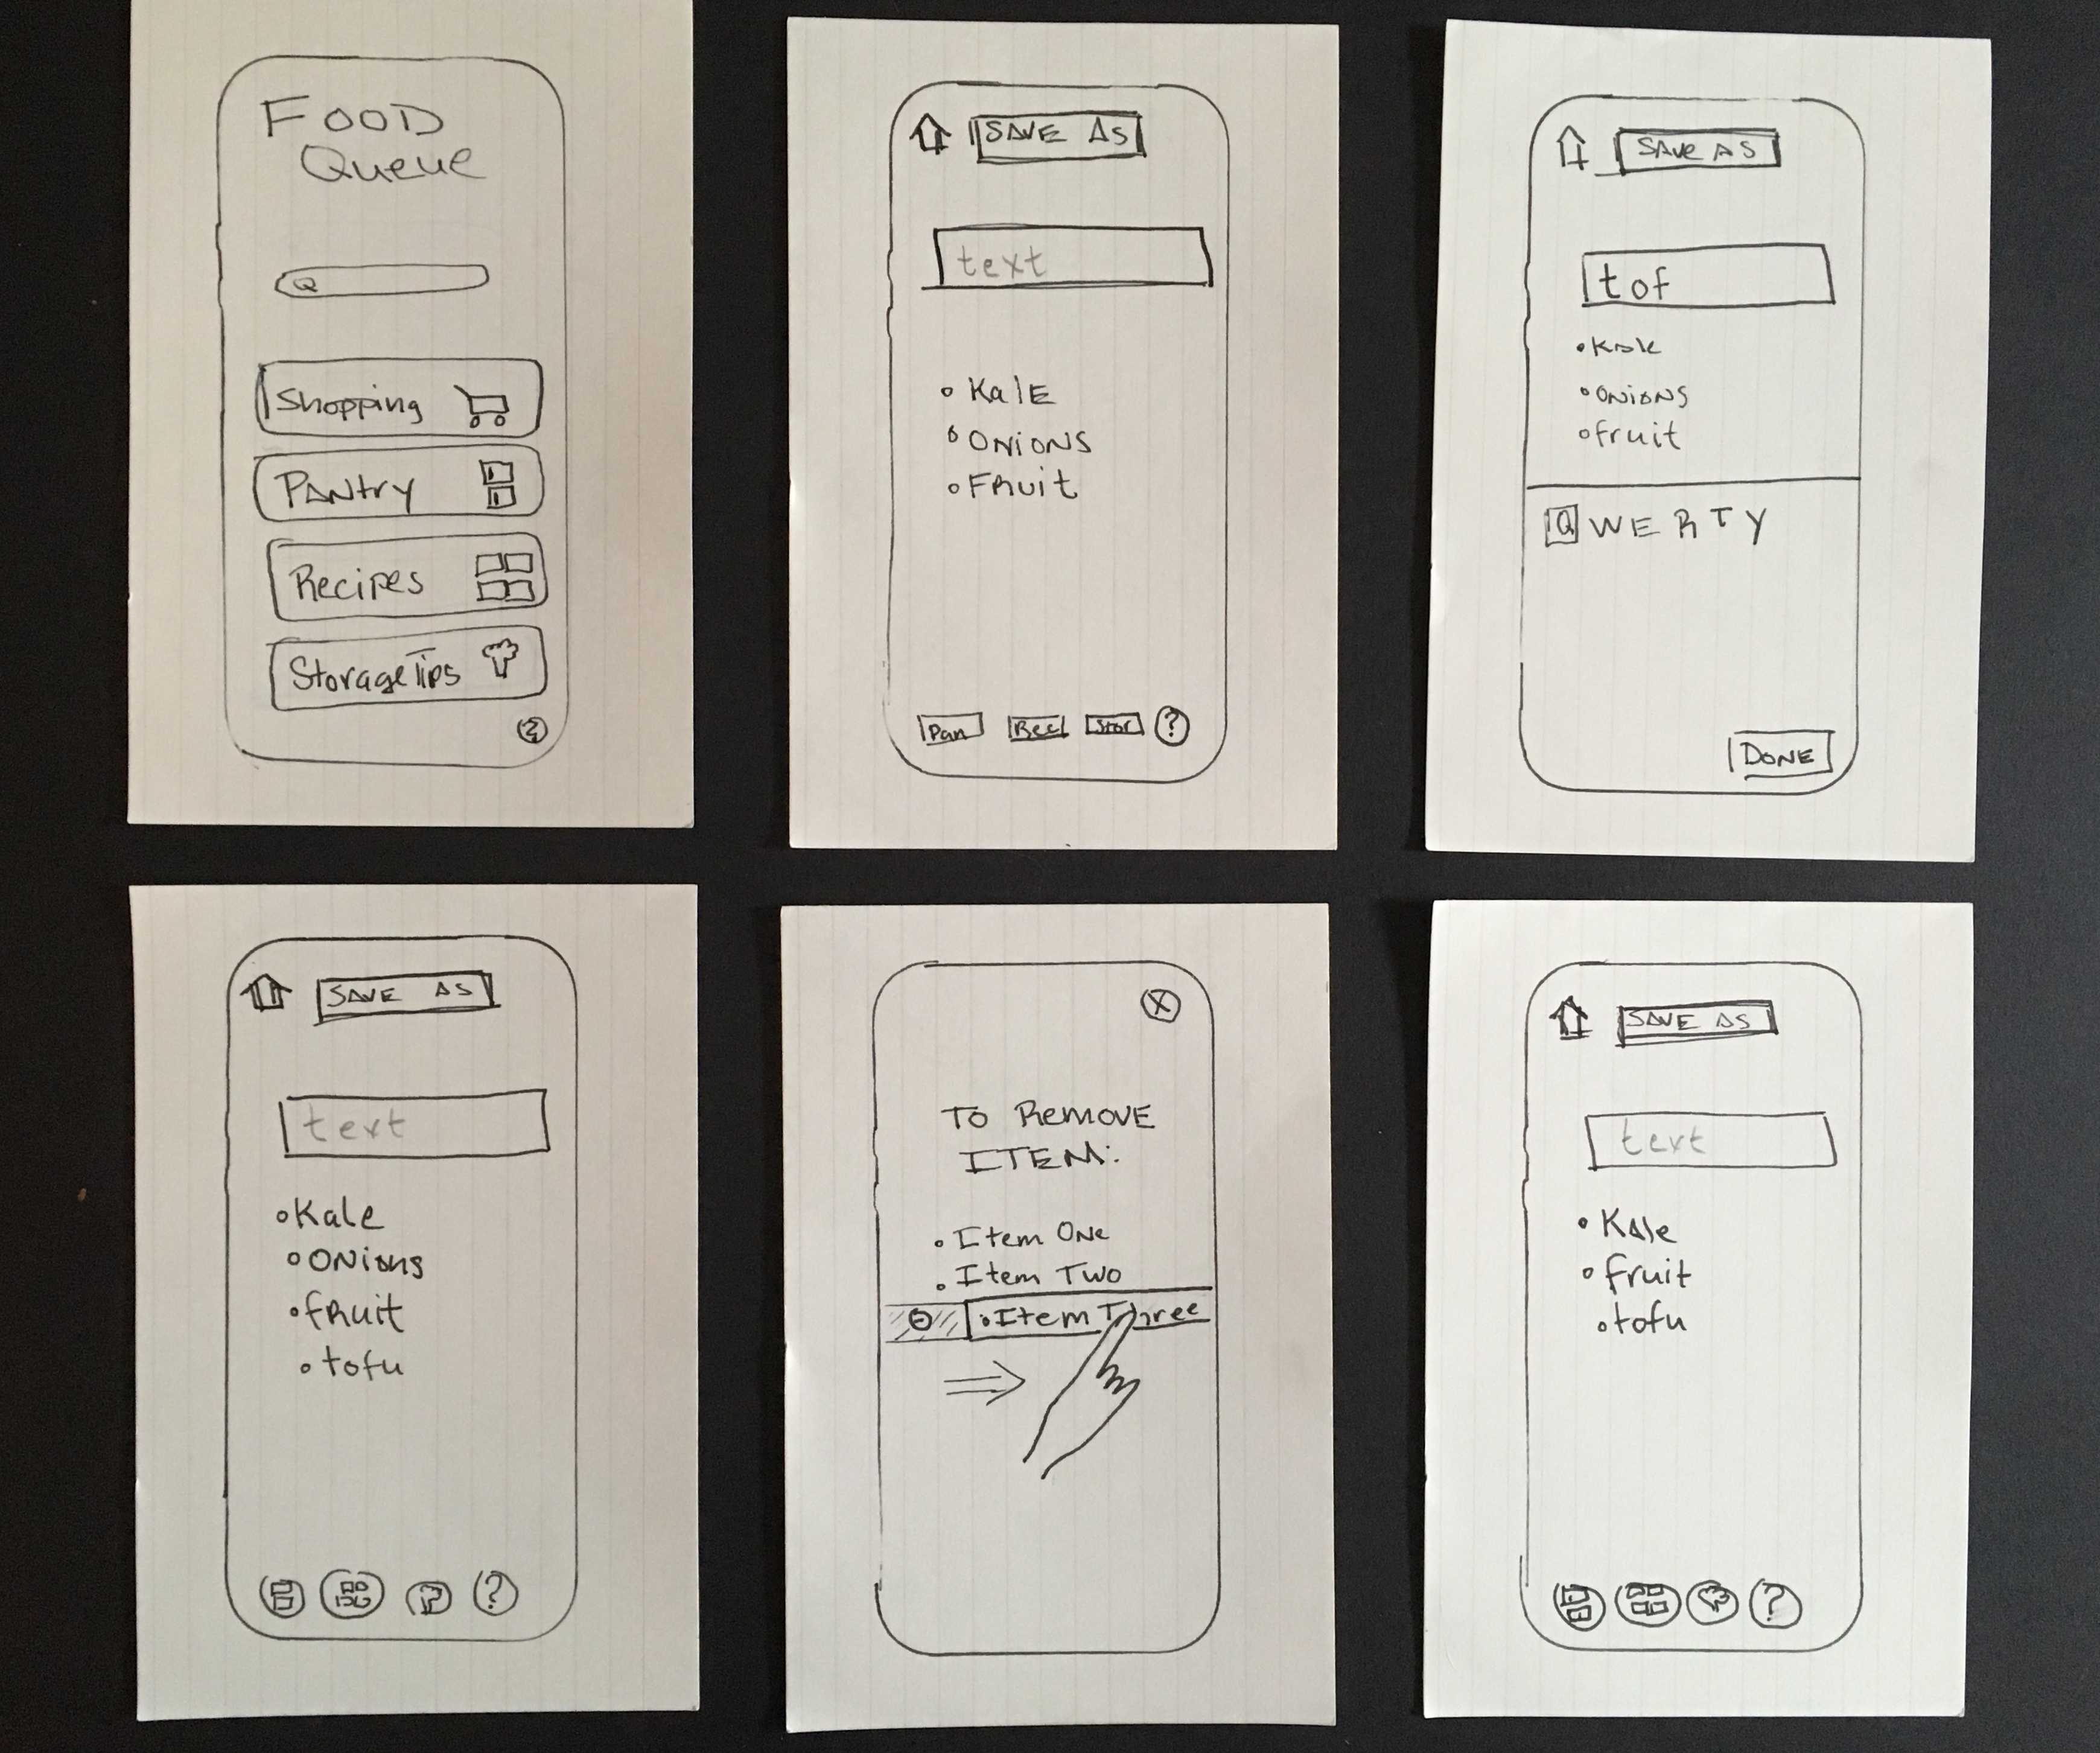 FOOD
Queue
Q
Shopping
Pantry
Recipes
Storage Tips
?
SAVE AS
text
Kale
Onions
Fruit
Pan Rec Stor ?
SAVE AS
tof
Kale
Onions
fruit
Q W E R T Y
DONE
SAVE AS
text
Kale
Onions
fruit
tofu
?
X
TO REMOVE
ITEM:
Item One
Item Two
Item Three
SAVE AS
text
Kale
fruit
tofu
?